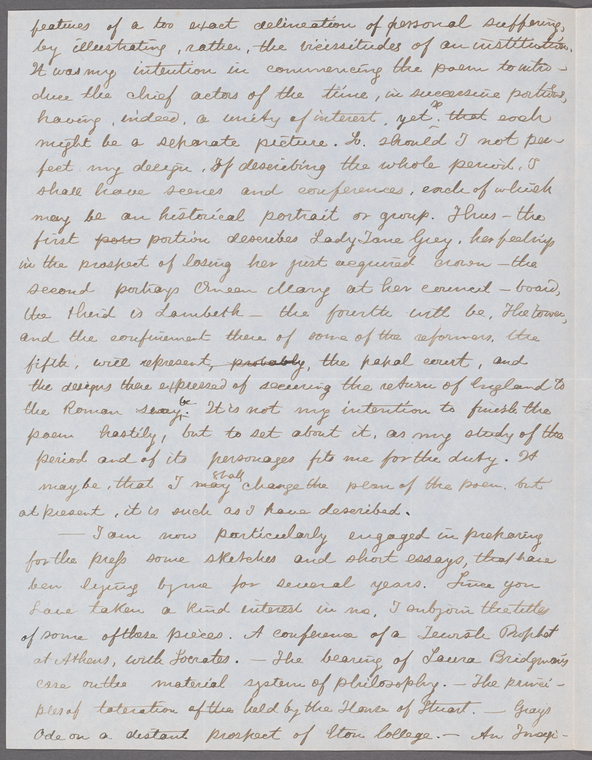 features of a too exact delineation of personal suffering,
by illustrating, rather, the vicissitudes of an institution.
It was my intention in commencing the poem to intro-
duce the chief actors of the time, in successive portions,
having, indeed, a unity of interest, yet that each
might be a separate picture. So should I not per-
fect my design, of describing the whole period, I
shall have scenes and conferences, each of which
may be an historical portrait or group. Thus – the
first port portion describes Lady Jane Grey, her feelings
in the prospect of losing her just acquired crown – the
second portrays Queen Mary at her council-board,
the third is Lambeth – the fourth will be, The tower,
and the confinement there of some of the reformers, the
fifth, will represent, probably, the papal court, and
the designs there expressed of securing the return of England to
the Roman sway. It is not my intention to finish the
poem hastily, but to set about it, as my study of the
period and of its personages fits me for the duty. It
may be, that I may shall change the plan of the poem, but
at present, it is such as I have described.
— I am now particularly engaged in preparing
for the press some sketches and short essays, that have
been lying by me for several years. Since you
have taken a kind interest in me, I subjoin the titles
of some of these pieces. A conference of a Jewish Prophet
at Athens, with Socrates. — The bearing of Laura Bridgman's
case on the material system of philosophy. — The princi-
ples of toleration as held by the House of Stuart. — Grays
Ode on a distant prospect of Eton College. — An Imagi-